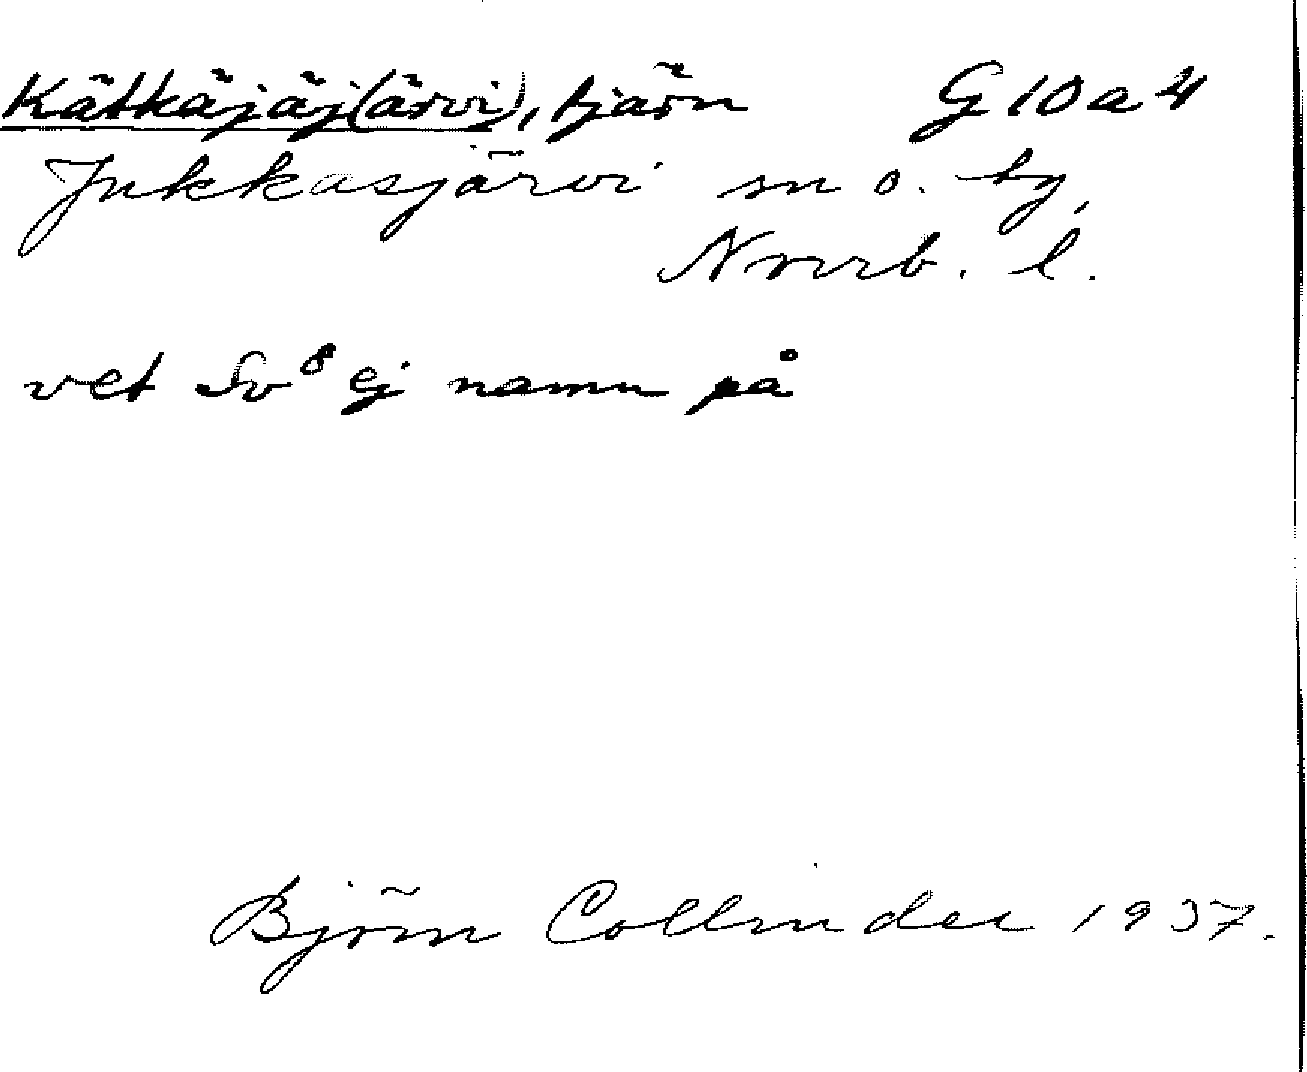 Kätkäjäj(ärvi), tjärn G 10 a 4
Jukkasjärvi sn o. by,
Norrb. l.
vet Sv⁸ ej namn på
Björn Collinder 1937.